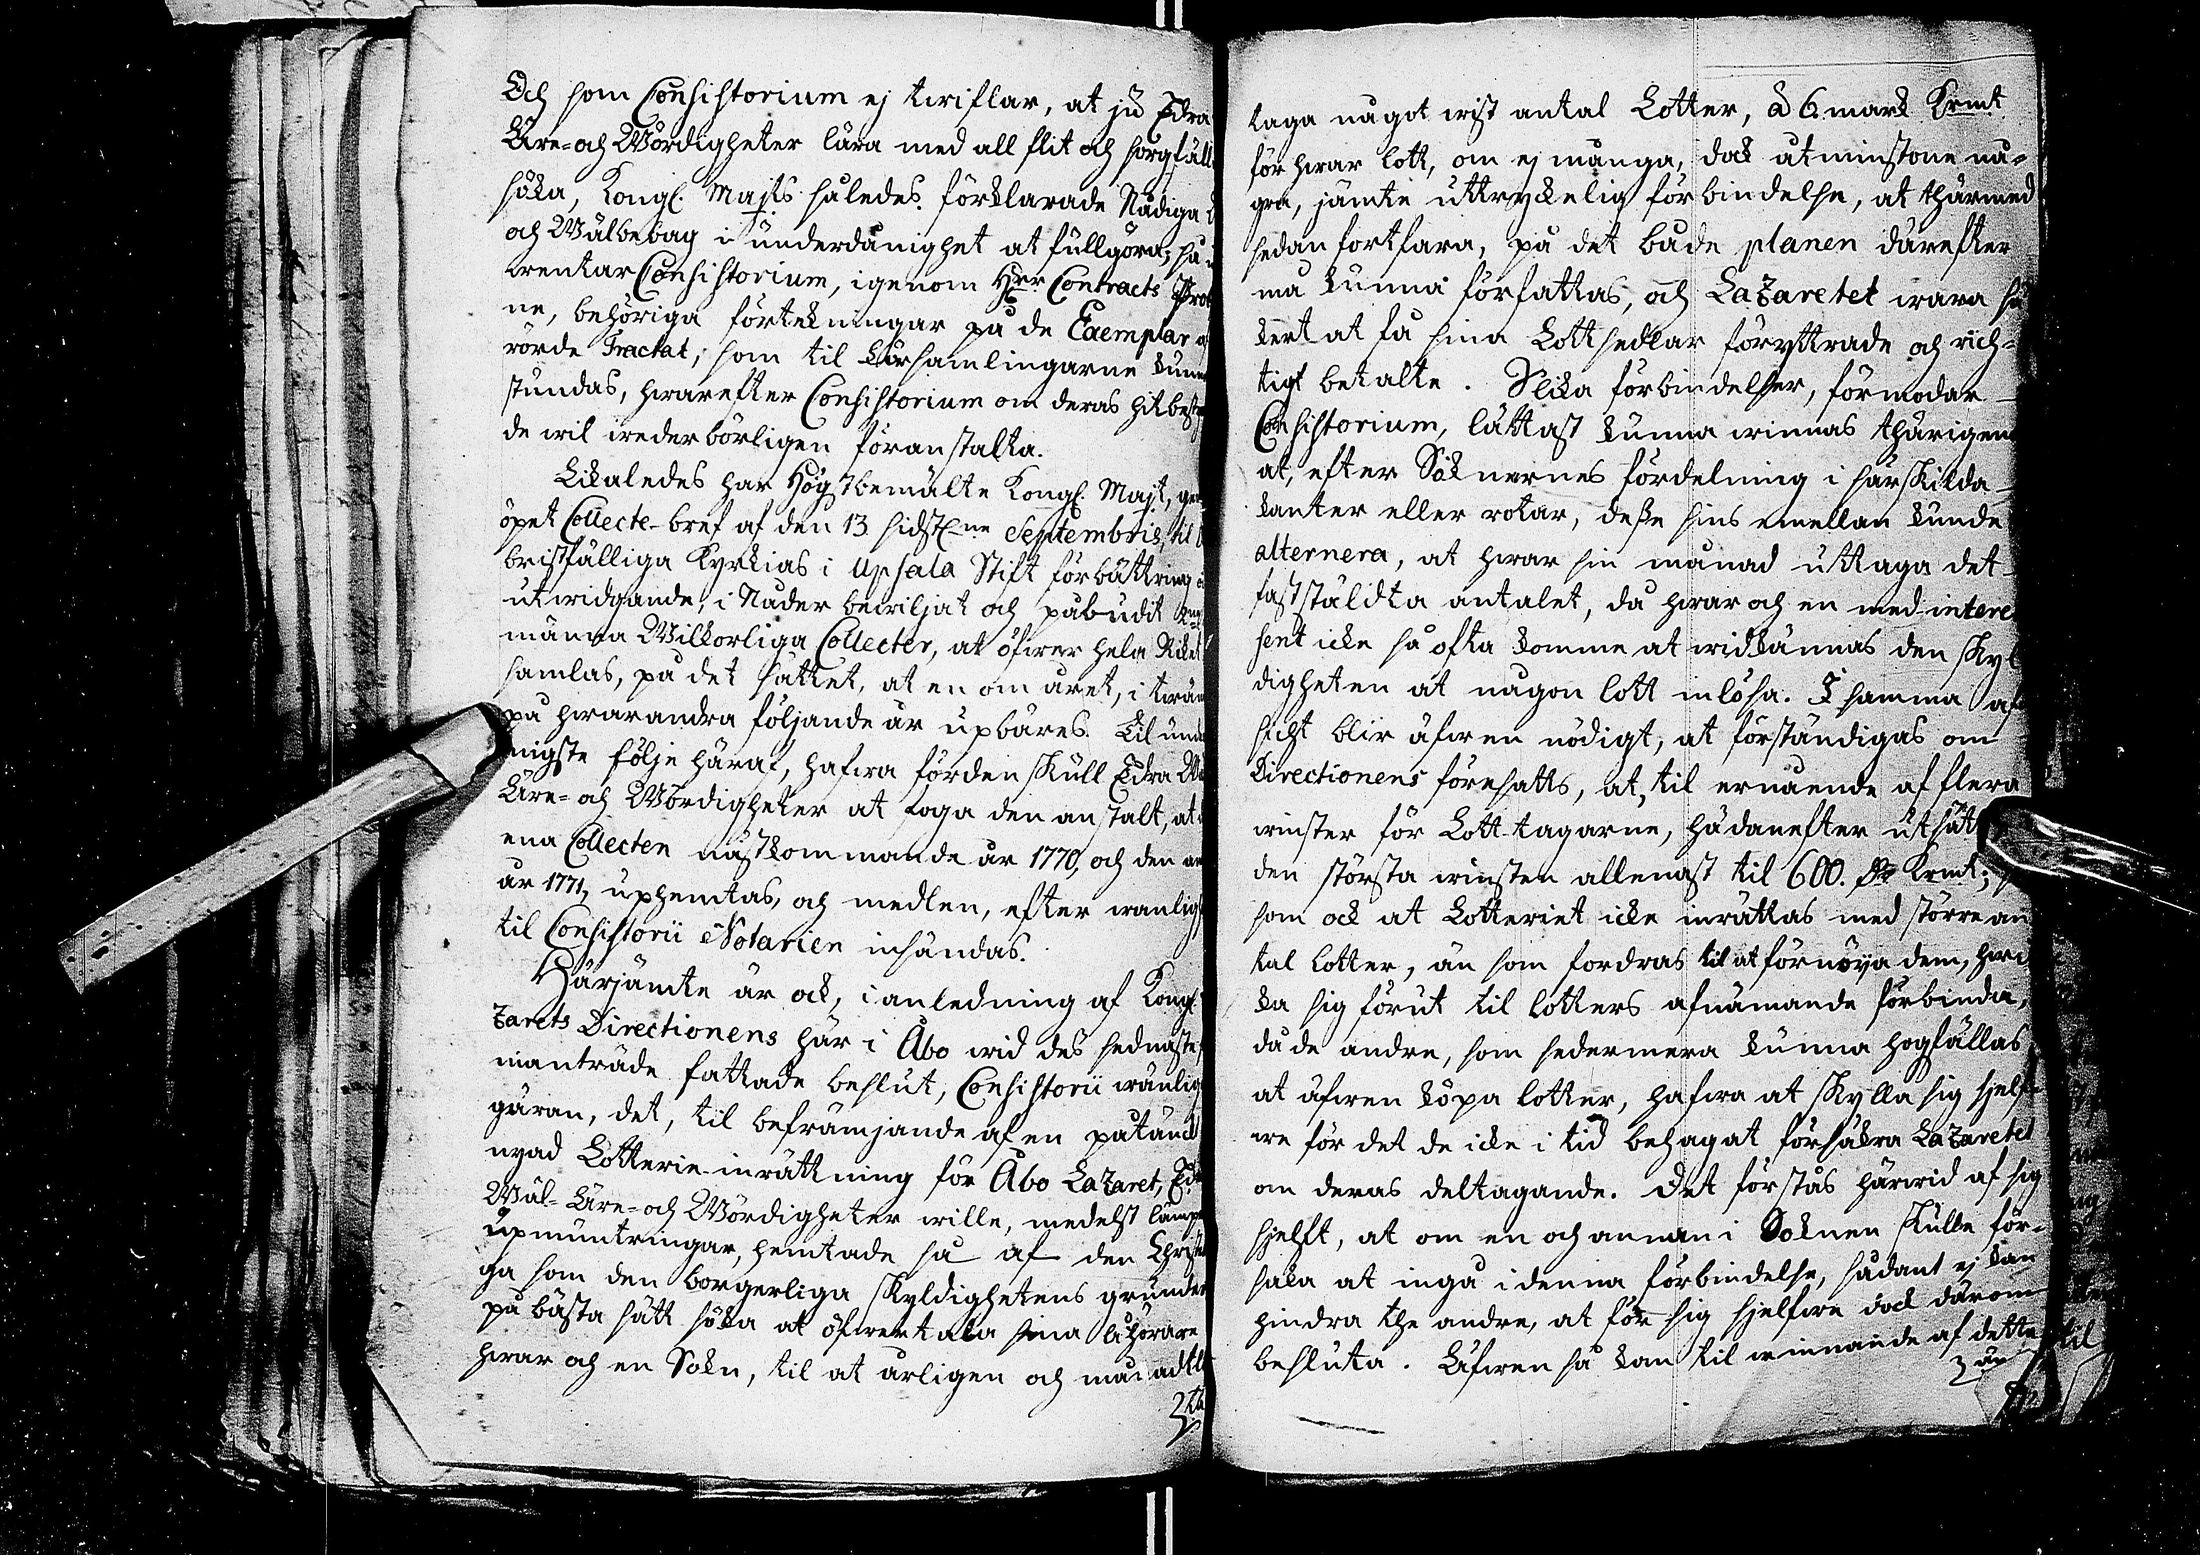 Och som Consistorium ej twiflar, at ju Edra
Äre- och Wördigheter lära med all flit och sorgfäll
söka, Kongl. Majts således förklarade Nådiga
och Wälbehag i underdånighet at fullgöra; så
wentar Consistorium, igenom Herr Contracts Pro
ne, behöriga förtekningar på de Exemplar af
rörde Tractat, som til Församlingarne kunna
stundas, hwarefter Consistorium om deras hitbestyr
de wil wederbörligen föranstalta.
Likaledes har Högstbemälte Kongl. Majt, gen
öpet Collecte-bref af den 13 sidstl-ne Septembris, til
bristfälliga Kyrkias i Upsala Stift förbättring
utwidgande, i Nåder bewiljat och påbudit
männa Wilkorliga Collecter, at öfwer hela Riket
samlas, på det sättet, at en om året, i twänne
på hwarandra följande år upbäres. Til under
nigste följe häraf, hafwa fördenskull Edra
Äre- och Wördigheter at foga den anstalt, at
ena Collecten nästkommande år 1770, och den an
år 1771, uphemtas, och medlen, efter wanlig
til Consistorii Notarien insändas.
Härjämte är ock, i anledning af Kongl.
zarets Directionens här i Åbo wid des sednaste
manträde fattade beslut, Consistorii wänlig
gäran, det, til befrämjande af en påtänckt
nyad Lotterie-inrättning för Åbo Lazaret, Edra
Wäl- Äre- och Wördigheter wille, medelst lämpe
upmuntringar, hemtade så af den Christe
ga som den borgerliga skyldighetens grunder
på bästa sätt söka at öfwertala sina åhörare
hwar och en Sokn, til at årligen och månadtl
taga något wist antal Lotter, à 6 mark Krmt
för hwar lott, om ej många, dock åtminstone nå-
gra, jämte uttryckelig förbindelse, at thärmed
sedan fortfara, på det både planen därefter
må kunna författas, och Lazaretet wara sä
kert at få sina Lottsedlar föryttrade och rich-
tigt betalte. Slika förbindelser, förmodar
Consistorium, lättast kunna winnas thärigenom
at, efter Soknarnes fördelning i särskilda
kanter eller rotar, desse sins emellan kunde
alternera, at hwar sin månad uttaga det
fastställdta antalet, då hwar och en med intere
sent icke så ofta komme at widkännas den skyl
digheten at någon lott inlösa. I samma af
sicht blir äfwen nödigt, at förständigas om
Directionens föresatts, at, til ernående af flera
winster för Lott-tagarne, hädanefter utsätt
den största winsten allenast til 600. Dr Krmt;
som ock at Lotteriet icke inrättas med större an
tal lotter, än som fordras til at förnöya dem, hwil
ka sig förut til lotters afnämande förbinda,
då de andre, som sedermera kunna hogfällas
at äfwen köpa lotter, hafwa at skylla sig sjelf-
we för det de icke i tid behagat försäkra Lazaretet
om deras deltagande. Det förstås härwid af sig
sjelft, at om en och annan i Soknen skulle för-
saka at ingå i denna förbindelse, sådant ej kan
hindra the andre, at för sig sjelfwe dock därom
besluta. Äfwen så kan til winnande af dette
än
til